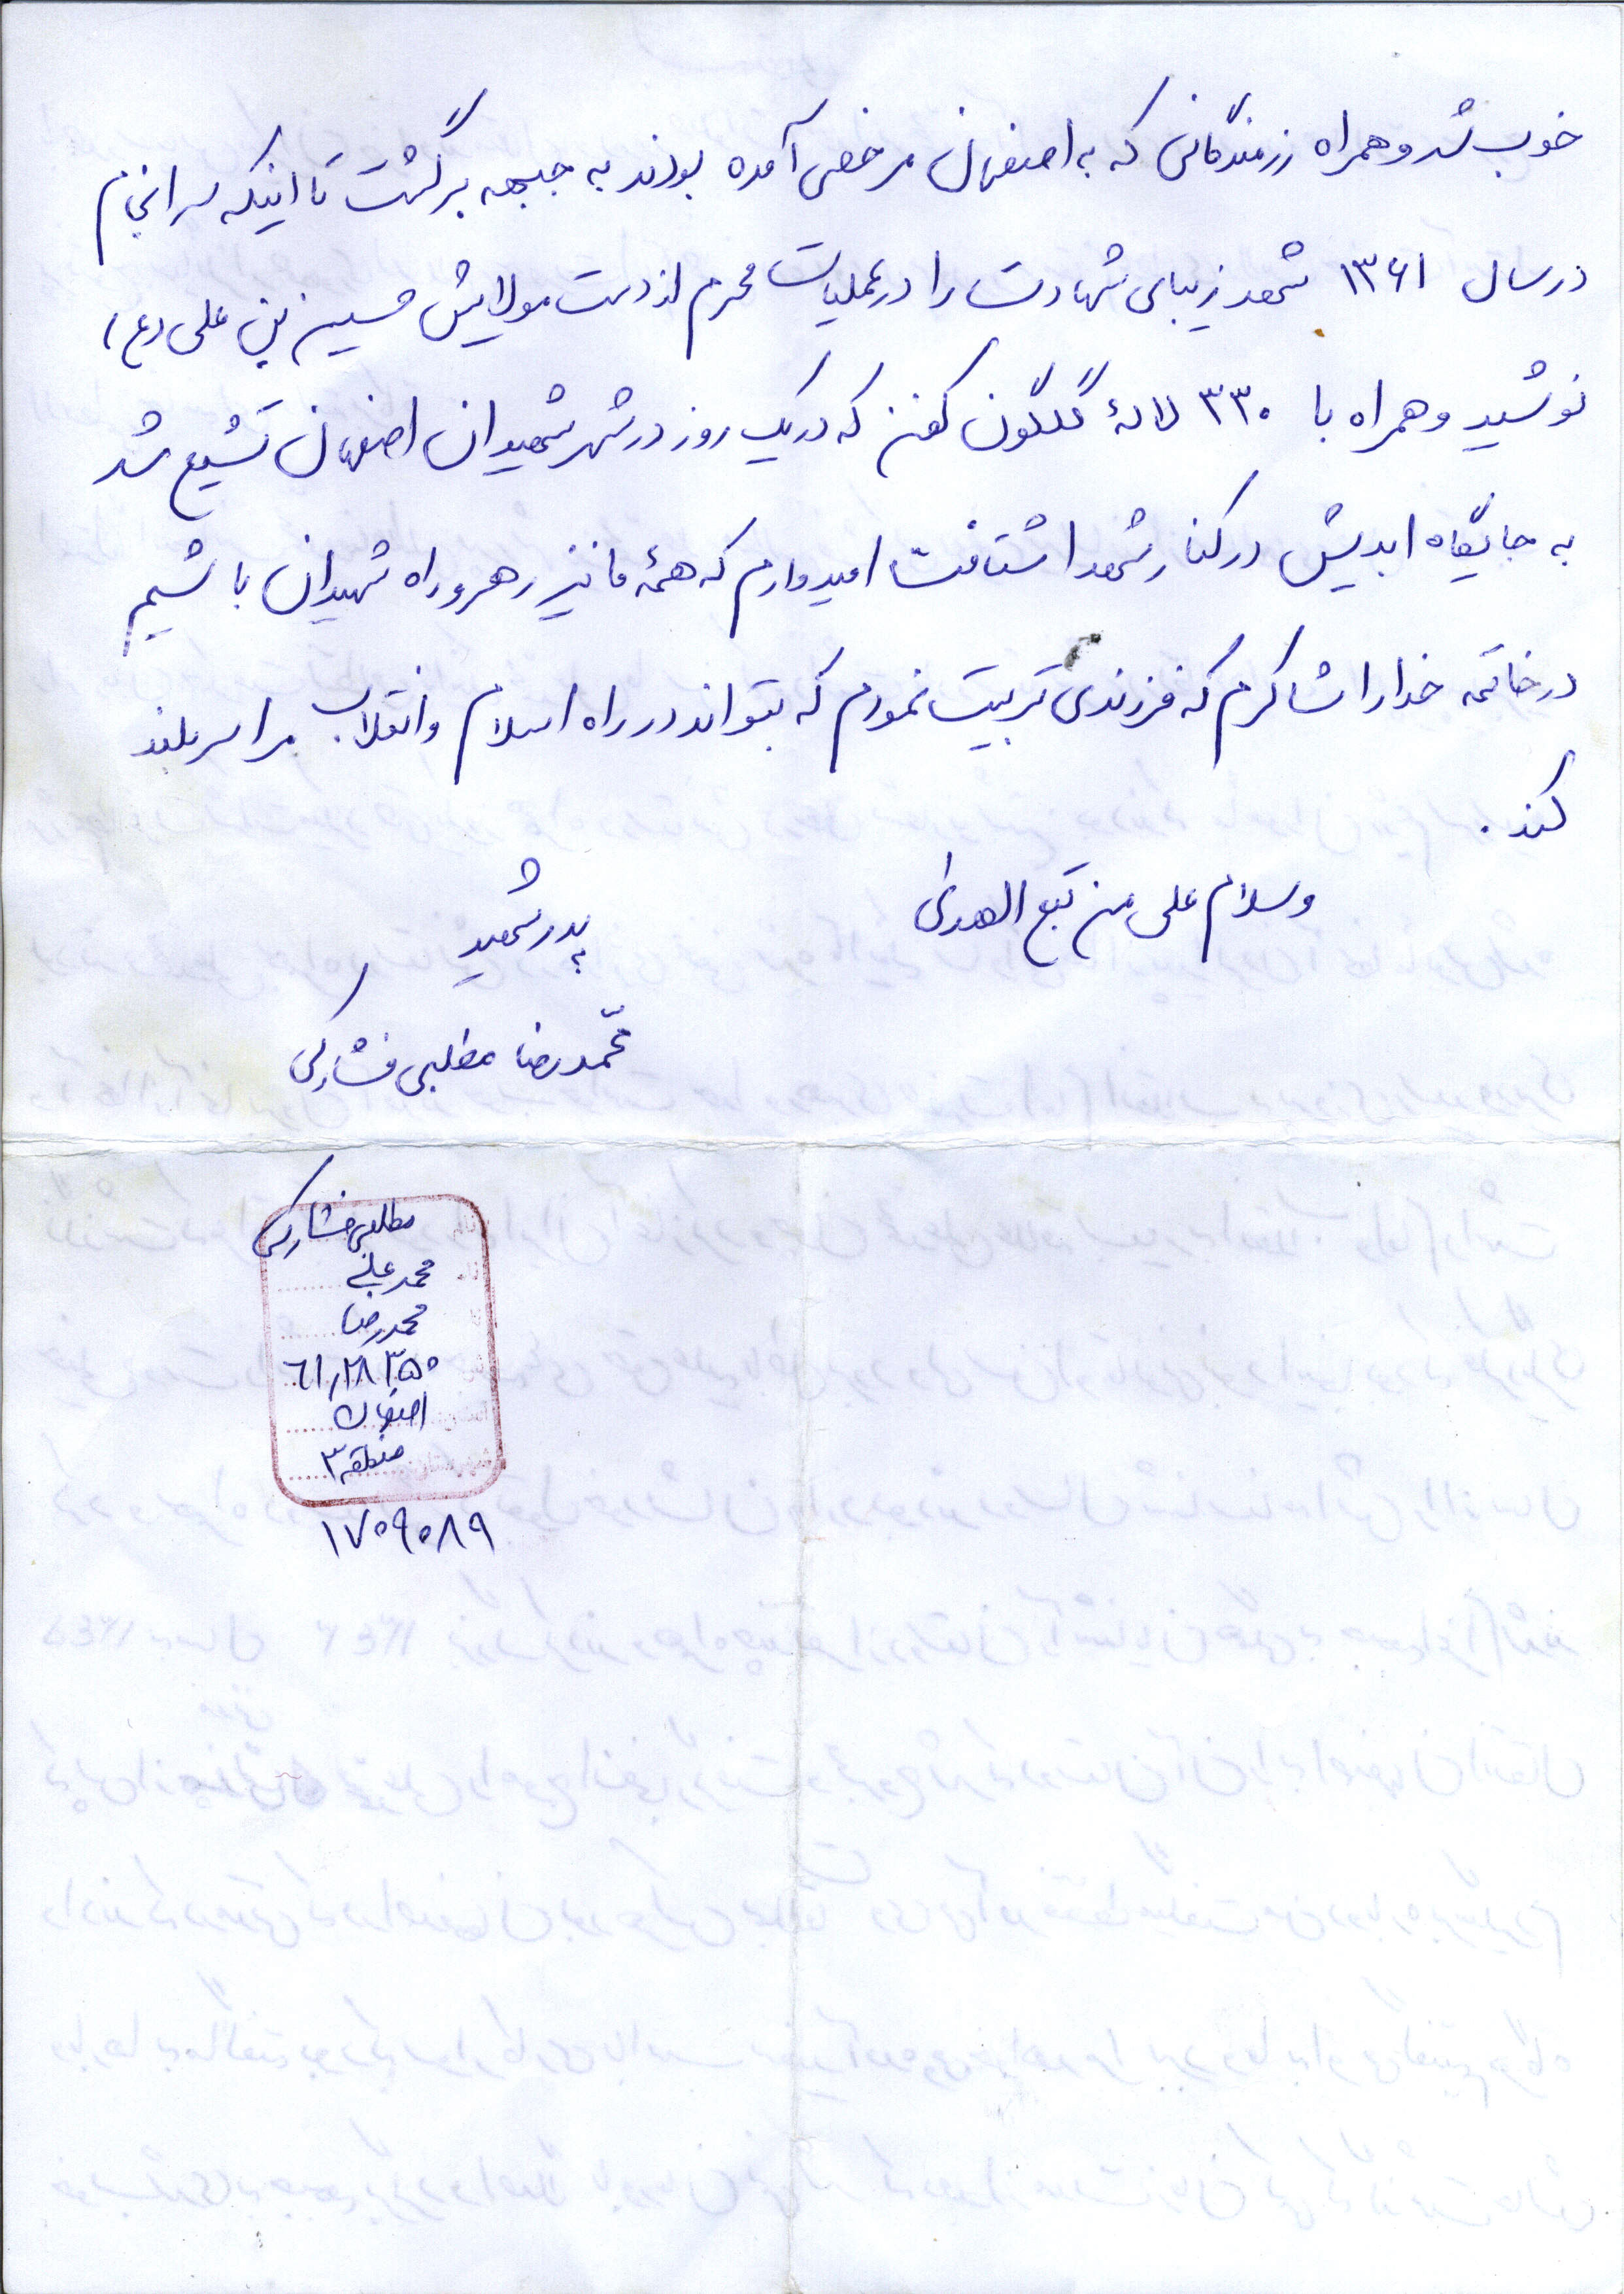 خوب شد و همراه رزمندگانی که به اصفهان مرخصی آمده بودند به جبهه برگشت تا اینکه سرانجام
در سال ۱۳۶۱ شهد زیبای شهادت را در عملیات محرم از دست مولایش حسین بن علی (ع)
نوشید و همراه با ۳۳۰ لاله گلگون کفن که در یک روز در شهر شهیدان اصفهان تشیع شد
به جایگاه ابدیش در کنار شهدا شتافت امیدوارم که همه ما نیز رهرو راه شهیدان باشیم
در خاتمه خدا را شاکرم که فرزندی تربیت نمودم که بتواند در راه اسلام و انقلاب مرا سربلند
کند .
وسلام علی من تبع الهدی
پدر شهید
محمدرضا مطلبی فشارکی
مطلبی فشارکی
محمد علی
محمدرضا
اصفهان
منطقه ۳
۱۷۰۹۰۸۹